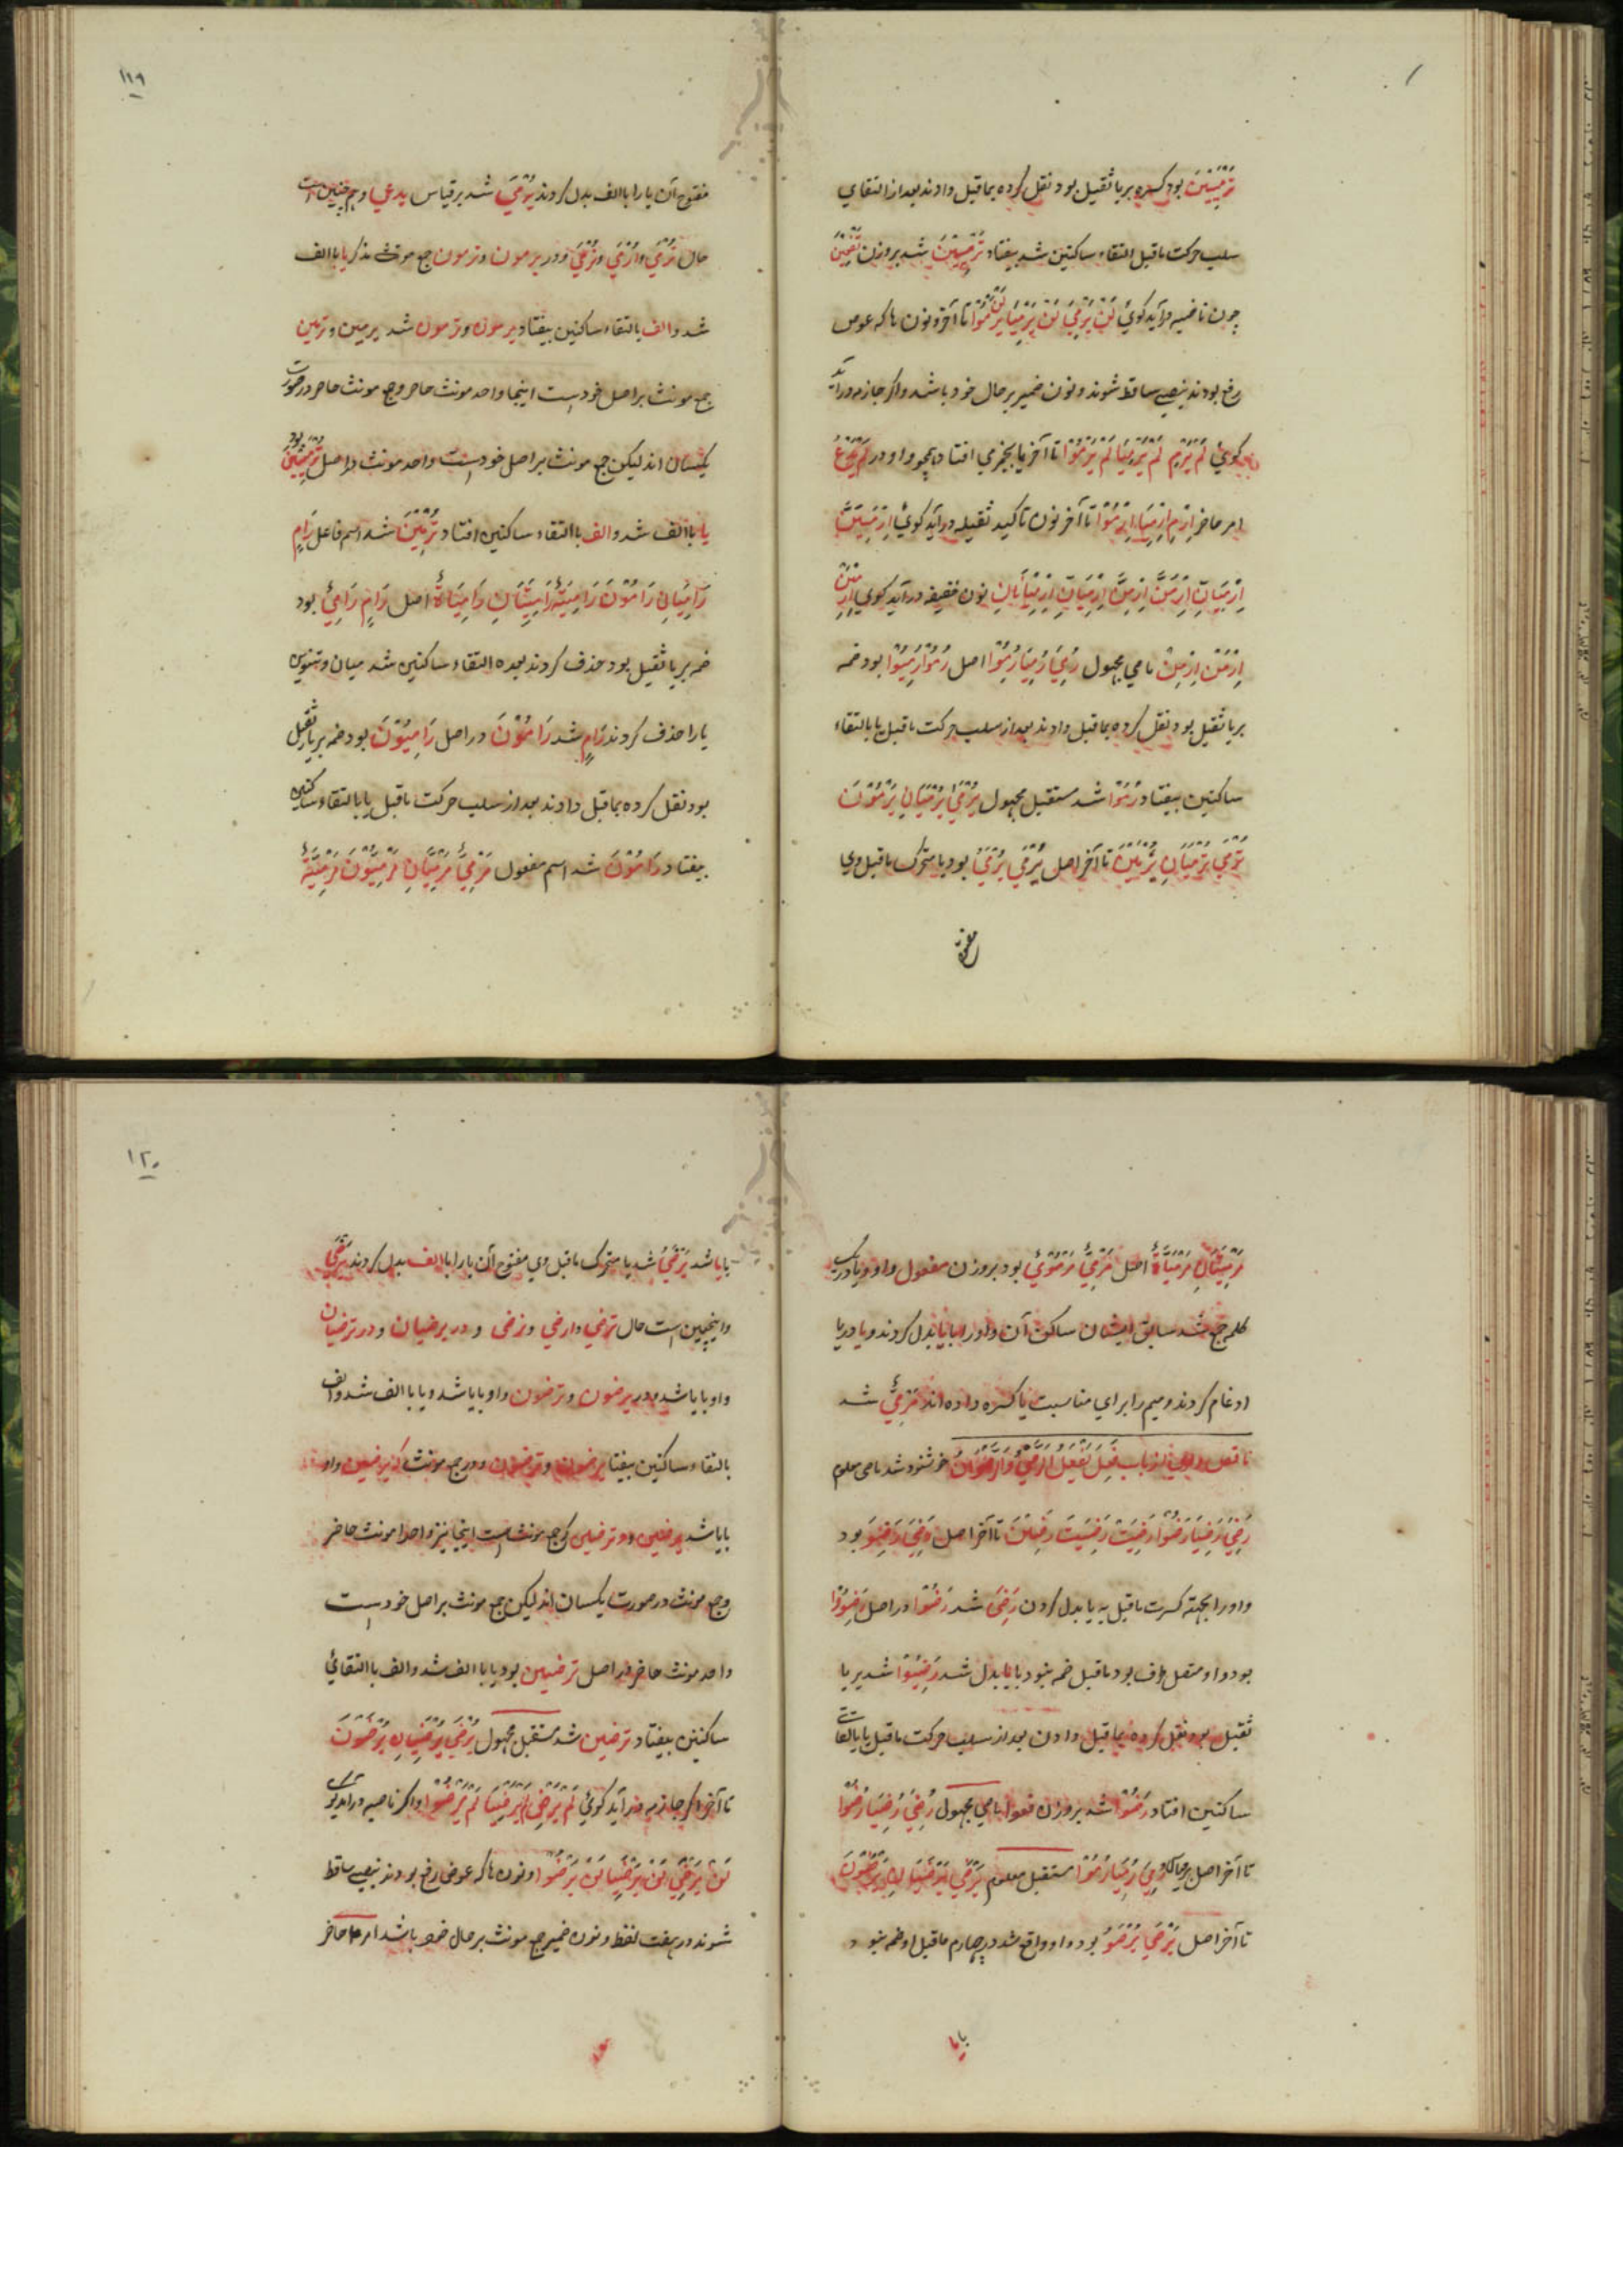 تَرْمِيِيْنَ بود کسره بر يا ثقيل بود نقل کرده بماقبل دادند بعد از التقاي
سلب حرکت ماقبل التقاء ساکنين شد بيفتاد تَرْمِيْنَ شد بروزن تَفْعِيْنَ
چون ناصبه درآيد کوئي لَنْ يَرْمِيَ لَنْ يَرْمِيَا لَنْ يَرْمُوْا تا آخر و نون ها که عوض
رفع بودند بنصبي ساقط شوند و نون ضمير بر حال خود باشد و اکر جازمه درآيد
کوئي لَمْ يَرْمِ لَمْ يَرْمِيَا لَمْ يَرْمُوْا تا آخر يا بجزمي افتاد همچو واو در لَمْ يَدْعُ
امر حاضر اِرْمِ اِرْمِيَا اِرْمُوْا تا آخر نون تاکيد ثقيله درآيد کوئي اِرْمِيَنَّ
اِرْمِيَانِّ اِرْمُنَّ اِرْمِنَّ اِرْمِيَانِّ اِرْمِيْنَانِّ نون خفيفه درآيد کوي اِرْمِيَنْ
اِرْمُنْ اِرْمِنْ ماضي مجهول رُمِيَ رُمِيَا رُمُوْا اصل رُمُوْا رُمِيُوْا بود ضمه
بر يا ثقيل بود نقل کرده بماقبل دادند بعد از سلب حرکت ماقبل يا بالتقاء
ساکنين بيفتاد رُمُوْا شد مستقبل مجهول يُرْمَي يُرْمَيَانِ يُرْمَوْنَ
تُرْمَي تُرْمَيَانِ يُرْمَيْنَ تا آخر اصل يُرْمَي يُرْمَيُ بود يا متحرک ماقبل وي
مفتوح
١١٩
مفتوح آن يا را با الف بدل کردند يُرْمَي شد بر قياس يدعي و هم چنين است
حال تُرْمَي و اُرْمَي و نُرْمَي و در يرمون و ترمون جمع مذکر يا با الف
شد و الف بالتقاء ساکنين بيفتاد يرمون و ترمون شد يرمين و ترمين
جمع مونث بر اصل خودست اينجا واحد مونث حاضر و جمع مونث حاضر در صورت
يکسان اند ليکن جمع مونث بر اصل خودست و احد مونث در اصل تُرْمَيِيْنَ بود
يا با الف شد و الف با التقاء ساکنين افتاد تُرْمَيْنَ شد اسم فاعل رَامٍ
رَامِيَانِ رَامُوْنَ رَامِيَةٌ رَامِيَتَانِ رَامِيَاتٌ اصل رَامٍ رَامِيٌ بود
ضمه بر يا ثقيل بود حذف کردند بعده التقاء ساکنين شد ميان و تنوين
يا را حذف کردند رَامٍ شد رَامُوْنَ در اصل رَامِيُوْنَ بود ضمه بر يا ثقيل
بود نقل کرده بماقبل دادند بعد از سلب حرکت ماقبل يا بالتقاء ساکنين
بيفتاد رَامُوْنَ شد اسم مفعول مَرْمِيٌّ مَرْمِيَّانِ مَرْمِيُّوْنَ مَرْمِيَّةٌ
مَرْمِيَّتَانِ مَرْمِيَّاتٌ اصل مَرْمِيٌّ مَرْمُوْيٌ بود بروزن مفعول واو و يا در يک
کلمه جمع شد سابق ايشان ساکن آن واو را بيا بدل کردند و يا در يا
ادغام کردند و ميم را براي مناسبت يا کسره داده اند مَرْمِيٌّ شد
ناقص واوي از باب فَعِلَ يَفْعَلُ الرَّضِيُّ وَالرِّضْوَانُ خوشنود شد ماضي معلوم
رَضِيَ رَضِيَا رَضُوْا رَضِيَتْ رَضِيَتَا رَضِيْنَ تا آخر اصل رَضِيَ رَضِوَ بود
واو را بجهته کسرت ماقبل به يا بدل کردن رَضِيَ شد رَضُوْا در اصل رَضِوُوْا
بود واو متصل طرف بود ماقبل ضمه نبود بايا بدل شد رَضِيُوْا شد بر يا
ثقيل بود نقل کرده بماقبل دادن بعد از سلب حرکت ماقبل يا بالتقات
ساکنين افتاد رَضُوْا شد بروزن فعوا ماضي مجهول رُضِيَ رُضِيَا رُضُوْا
تا آخر اصل رُمِيَ رُمِيَا رُمُوْا مستقبل معلوم يَرْضَي يَرْضَيَانِ يَرْضَوْنَ
تا آخر اصل يَرْضَي يَرْضَوُ بود واو واقع شد در چهارم ماقبل او ضمه نبود
بايا
١٢٠
بايا شد يَرْضَيُ شد يا متحرک ماقبل وي مفتوح آن يا را با الف بدل کردند يَرْضَي
و اينچنين است حال ترضي و ارضي و نرضي و در يرضيان و در ترضيان
واو بايا شد و در يرضون و ترضون واو بايا شد و يا با الف شد و الف
بالتقاء ساکنين بيفتا يرضون و ترضون و در جمع مونث که يرضين واو
بايا شد يرضين و در ترضين که جمع مونث است اينجا نيز واحدا مونث حاضر
و جمع مونث در صورت يکسان اند ليکن جمع مونث بر اصل خودست
واحد مونث حاضر در اصل ترضيين بود يا با الف شد و الف با التقائي
ساکنين بيفتاد ترضين شد مستقبل مجهول يُرْضَي يُرْضَيَانِ يُرْضَوْنَ
تا آخر اکر جازمه درآيد کوئي لَمْ يَرْضَ لَمْ يَرْضَيَا لَمْ يَرْضَوْا و اکر ناصبه درآيد کوي
لَنْ يَرْضَي لَنْ يَرْضَيَا لَنْ يَرْضَوْا و نون ها که عوض رفع بودند بنصبي ساقط
شوند در هفت لفظ و نون ضمير جمع مونث بر حال خود باشد امر حاضر